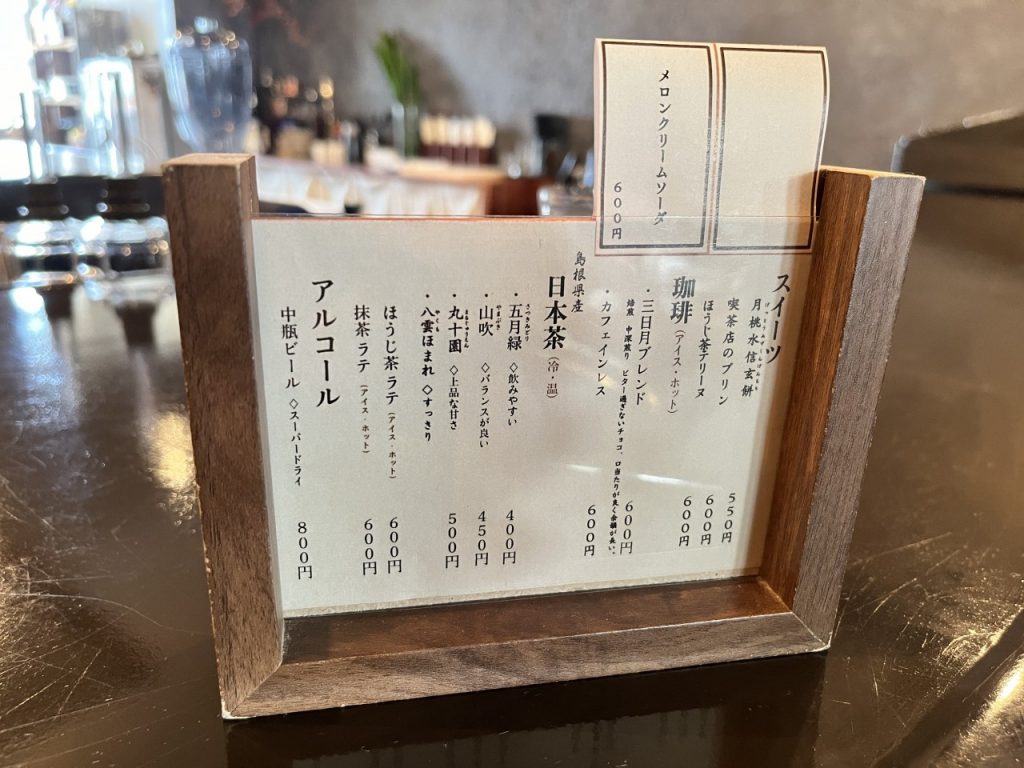 メロンクリームソーダ 600円
スイーツ
月桃水信玄餅 550円
喫茶店のプリン 600円
ほうじ茶テリーヌ 600円
珈琲(アイス・ホット)
・三日月ブレンド 600円
焙煎 中深煎り ビター過ぎないチョコ、口当たりが良く余韻が長い。
・カフェインレス 600円
島根県産
日本茶(冷・温)
さつきみどり
・五月緑 ◇飲みやすい 400円
やまぶき
・山吹 ◇バランスが良い 450円
・丸十園 ◇上品な甘さ 500円
やくも
・八雲ほまれ ◇すっきり
ほうじ茶ラテ(アイス・ホット) 600円
抹茶ラテ(アイス・ホット) 600円
アルコール
中瓶ビール ◇スーパードライ 800円